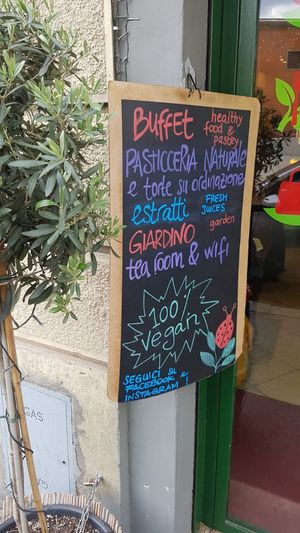 BUFFET healthy food & pastry
PASTICCERIA NATURALE
e torte su ordinazione
estratti FRESH JUICES
GIARDINO garden
tea room & wifi
100%
vegan
SEGUICI SU
FACEBOOK e
INSTAGRAM!
GAS